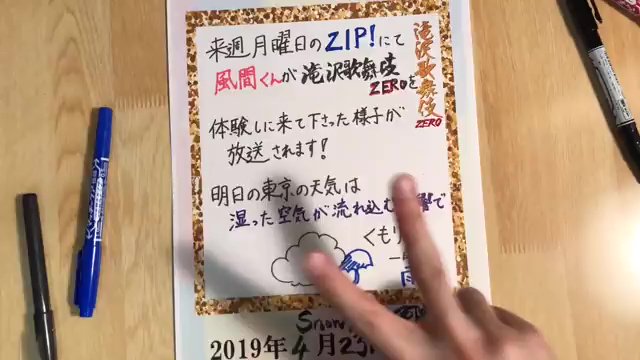 来週月曜日のZIP!にて
風間くんが滝沢歌舞伎
ZEROを
滝沢歌舞伎
ZERO
体験しに来て下さった様子が
放送されます!
明日の東京の天気は
湿った空気が流れ込む響で
くもり
雨
Snow
2019年4月2